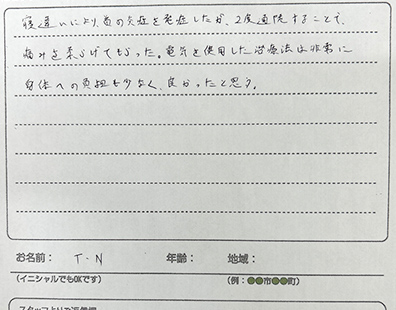 寝違いにより、首の炎症を発症したが、2度通院することで、
痛みを柔らげてもらった。電気を使用した治療法は非常に
身体への負担も少なく、良かったと思う。
お名前： T・N 年齢： 地域：
(イニシャルでもOKです) (例：●●市●●町)